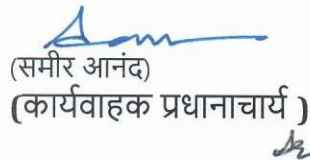 (समीर आनंद)
(कार्यवाहक प्रधानाचार्य )